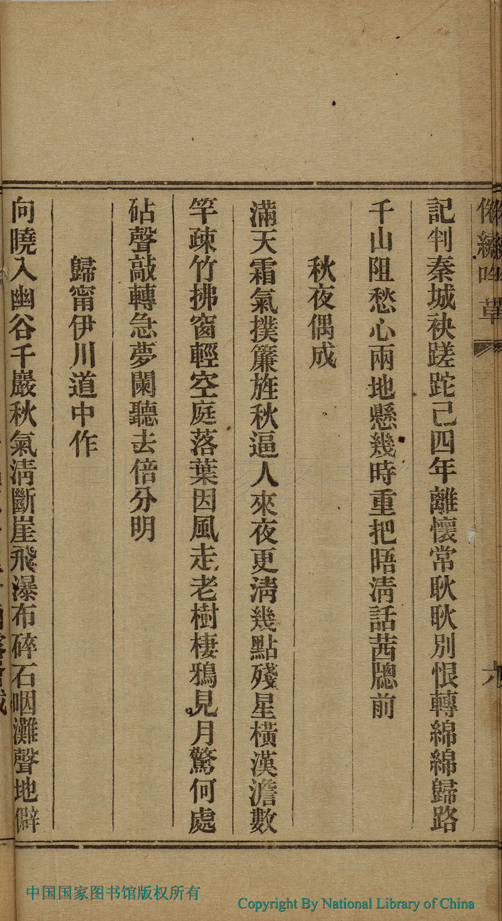 記判秦城袂蹉跎已四年離懷常耿耿別恨轉綿綿歸路
千山阻愁心兩地懸幾時重把晤清話茜牕前
秋夜偶成
滿天霜氣撲簾旌秋逼人來夜更淸幾點殘星橫漢澹數
竿疎竹拂窗輕空庭落葉因風走老樹棲鴉見月驚何處
砧聲敲轉急夢闌聽去倍分明
歸甯伊川道中作
向曉入幽谷千巖秋氣淸斷崖飛瀑布碎石咽灘聲地僻
六
中国国家图书馆版权所有
Copyright By National Library of China